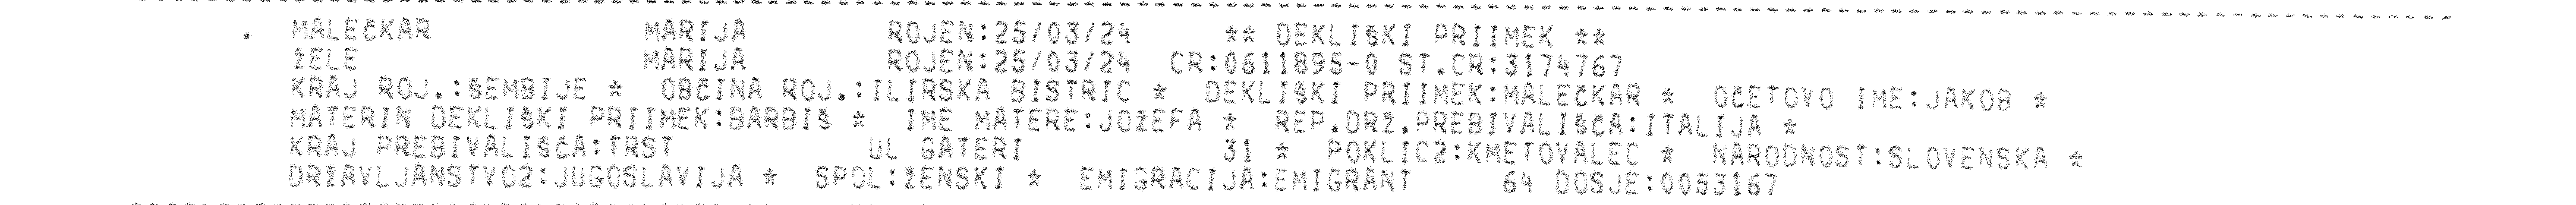 . MALEČKAR MARIJA ROJEN:25/03/24 ** DEKLIŠKI PRIIMEK **
ŽELE MARIJA ROJEN:25/03/24 CR:0611895-0 ST.CR:3174767
KRAJ ROJ.:ŠEMBIJE * OBČINA ROJ.:ILIRSKA BISTRIC * DEKLIŠKI PRIIMEK:MALEČKAR * OČETOVO IME:JAKOB *
MATERIN DEKLIŠKI PRIIMEK:BARBIŠ * IME MATERE:JOŽEFA * REP.DRŽ.PREBIVALIŠČA:ITALIJA *
KRAJ PREBIVALIŠČA:TRST UL GATERI 31 * POKLIC2:KMETOVALEC * NARODNOST:SLOVENSKA *
DRŽAVLJANSTVO2:JUGOSLAVIJA * SPOL:ŽENSKI * EMIGRACIJA:EMIGRANT 64 DOSJE:0053167